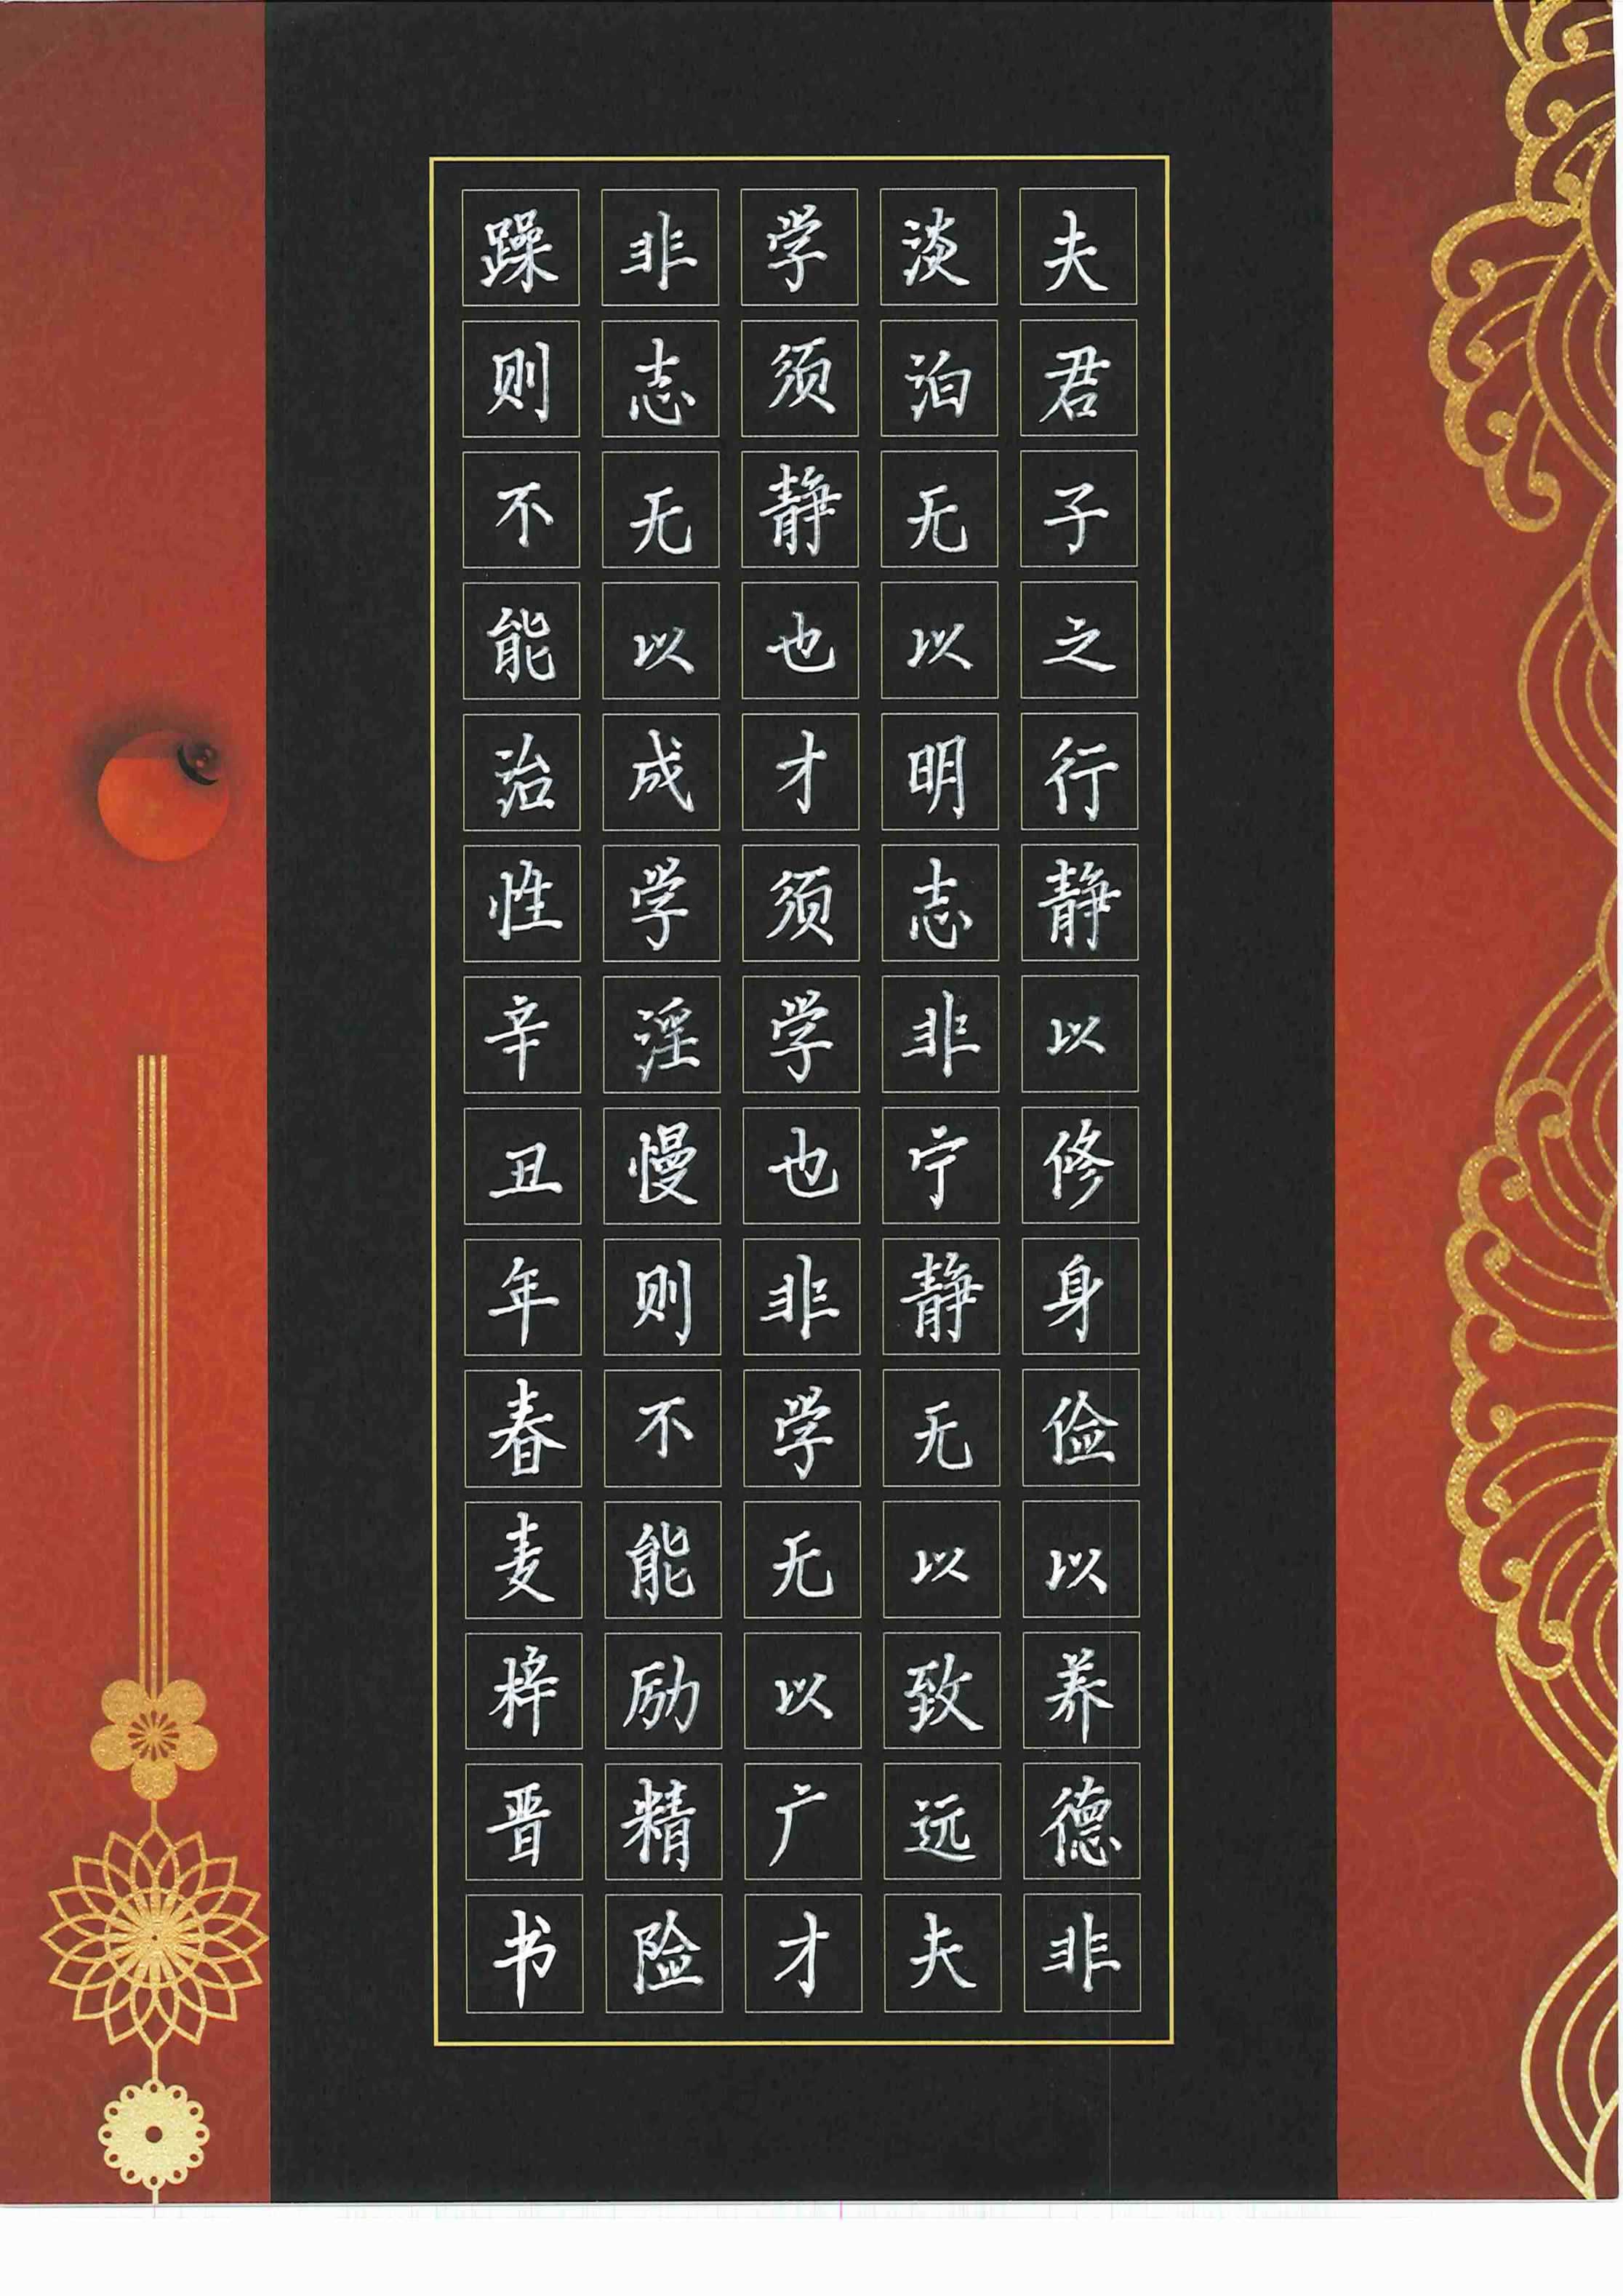 夫君子之行静以修身俭以养德非
淡泊无以明志非宁静无以致远夫
学须静也才须学也非学无以广才
非志无以成学淫慢则不能励精险
躁则不能治性辛丑年春麦梓晋书